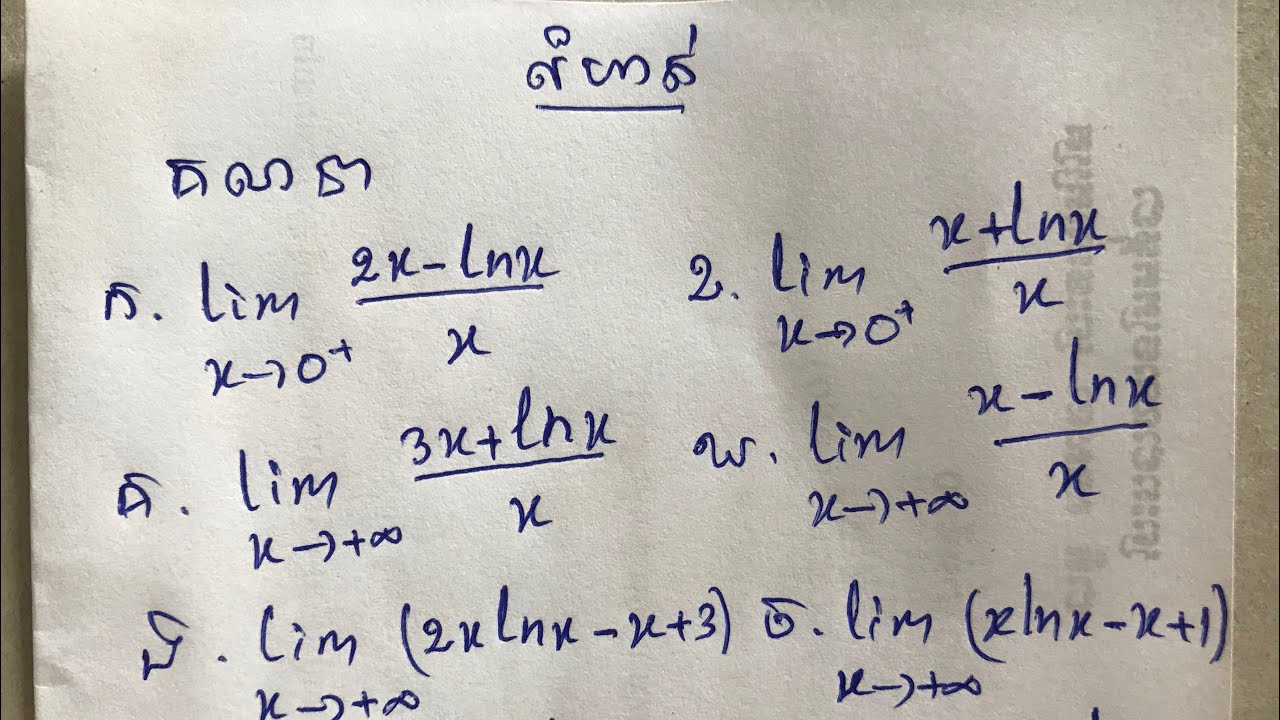 លំហាត់
គណនា
ក. lim x→0⁺ (2x-lnx)/x ខ. lim x→0⁺ (x+lnx)/x
គ. lim x→+∞ (3x+lnx)/x ឃ. lim x→+∞ (x-lnx)/x
ង. lim x→+∞ (2xlnx-x+3) ច. lim x→+∞ (xlnx-x+1)